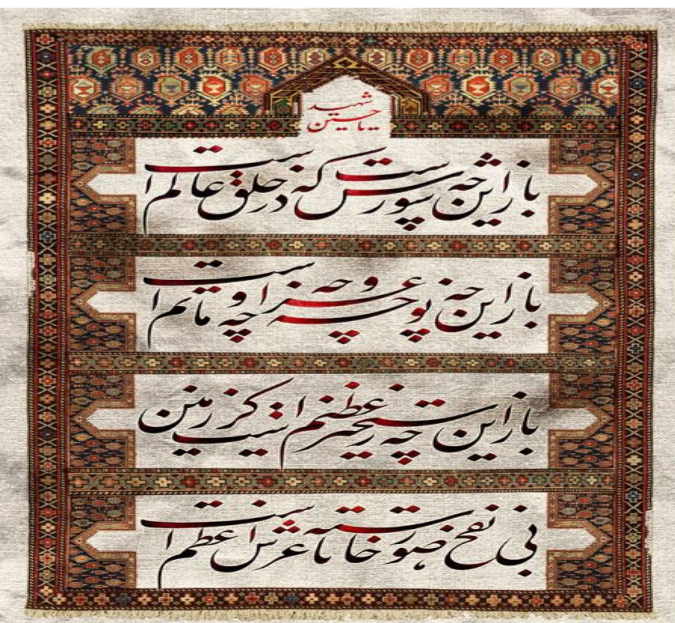 شهید
یا حسین
باز این چه شورش است که در خلق عالم است
باز این چه نوحه و چه عزا و چه ماتم است
باز این چه رستخیز عظیم است کز زمین
بی نفخ صور خاسته تا عرش اعظم است